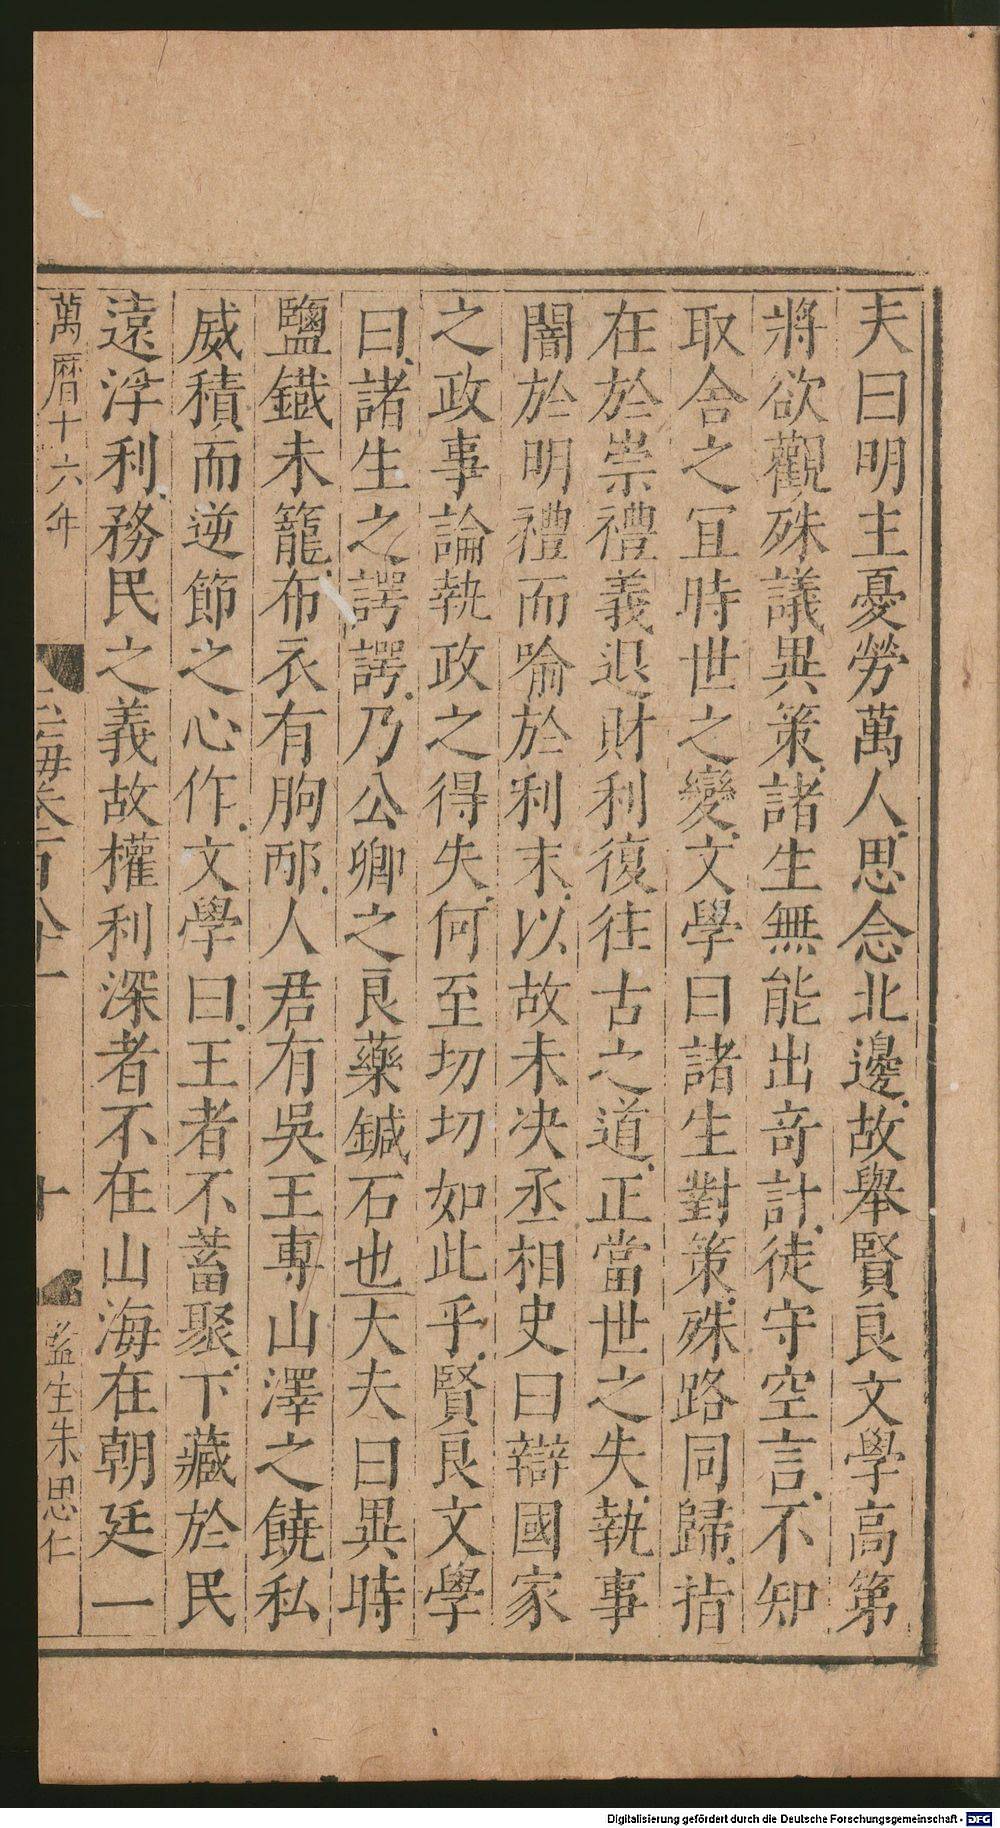 夫曰明主憂勞萬人思念北邊故舉賢良文學高第
將欲觀殊議異策諸生無能出竒計徒守空言不知
取舍之宜時世之變文學曰諸生對策殊路同歸指
在於崇禮義退財利復往古之道正當世之失執事
闇於明禮而喻於利末以故未决丞相史曰辯國家
之政事論執政之得失何至切切如此乎賢良文學
曰諸生之諤諤乃公卿之良藥鍼石也大夫曰異時
鹽鐡未籠布衣有朐邴人君有吳王專山澤之饒私
威積而逆節之心作文學曰王者不蓄聚下藏於民
遠浮利務民之義故權利深者不在山海在朝廷一
萬曆十六年
玉海卷一百八十一
十
監生朱思仁
Digitalisierung gefördert durch die Deutsche Forschungsgemeinschaft - DFG